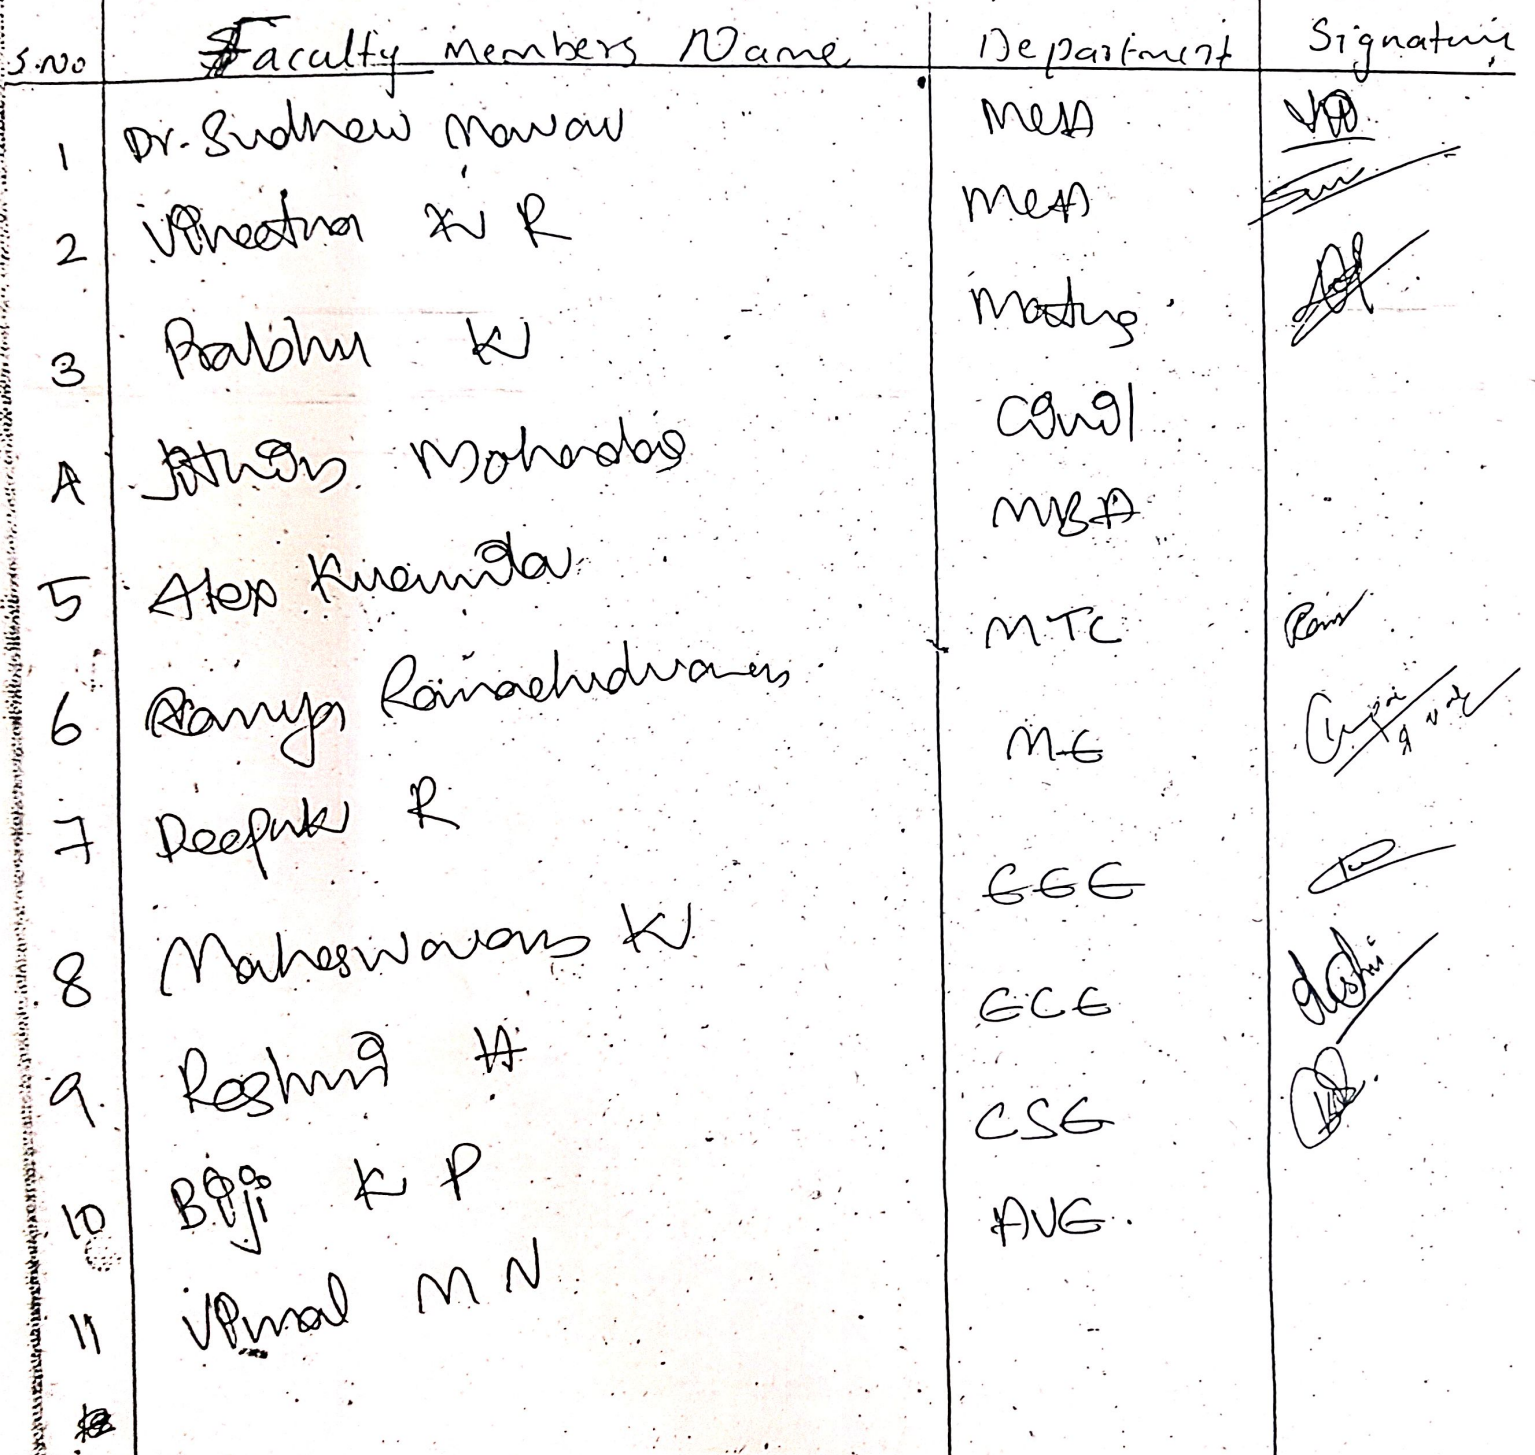 S.No Faculty members Name Department Signature
1 Dr. Sudheer Marar MCA
2 Vineetha K R MCA
3 Prabhu K Maths
4 Jithin Mohandas Civil
5 Alex Kuranda MBA
6 Ramya Ramachandran MTC
7 Deepak R ME
8 Maheswaran K EEE
9. Reshmi H ECE
10 Biji K P CSE
11 Vimal M N AUE.